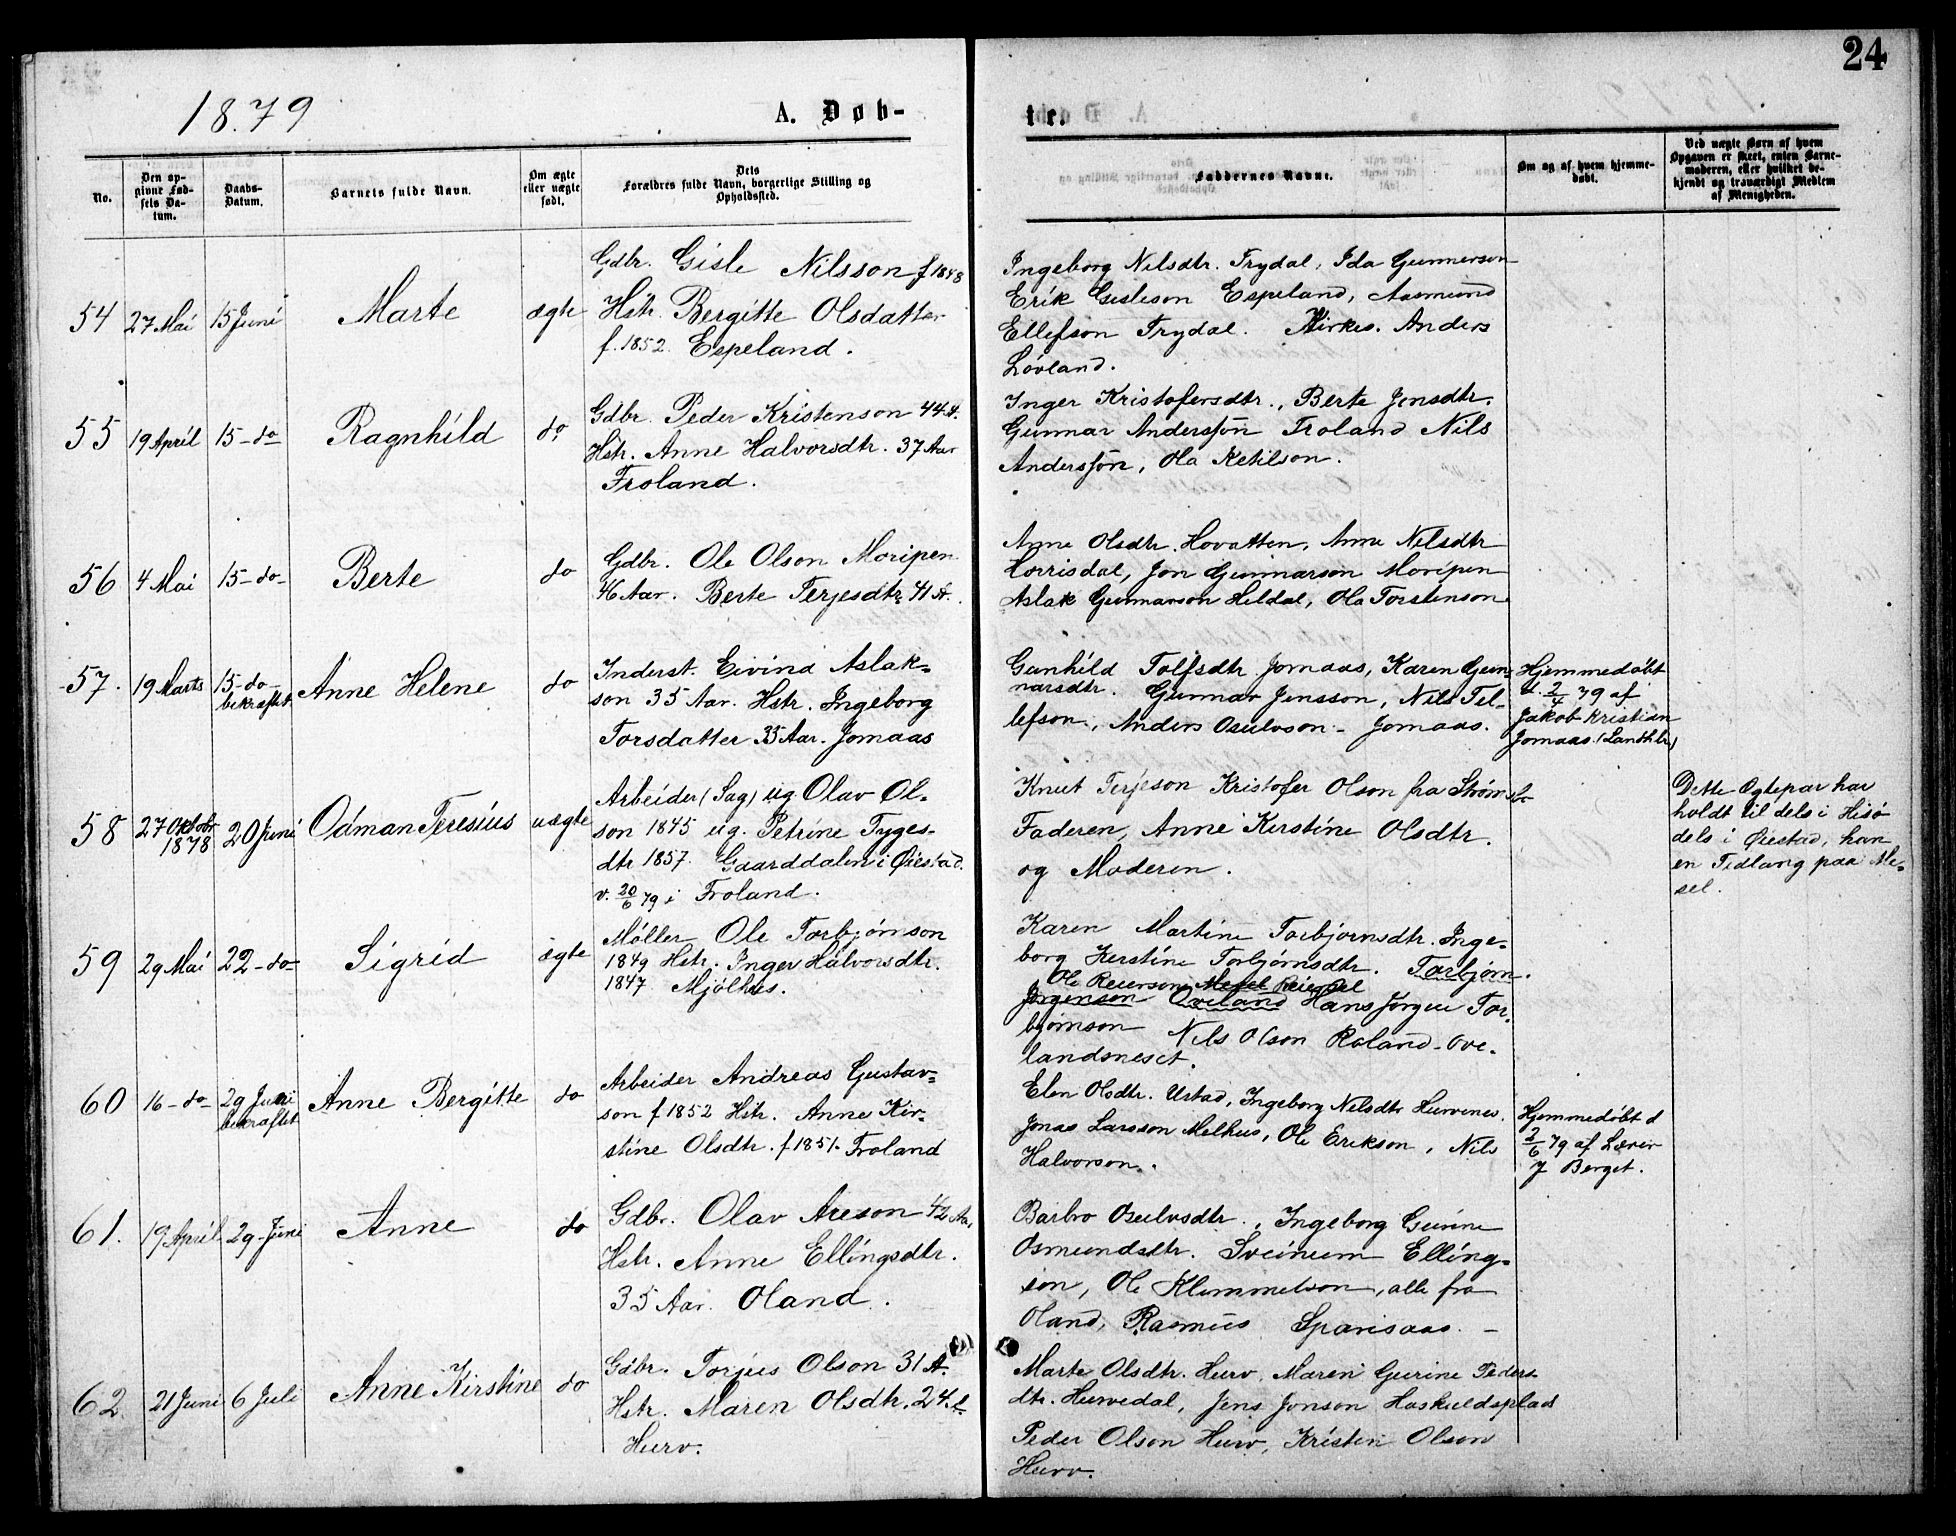 24
1879
A. Døb-
ter.
No.
Den op-
givne Fød-
sels Da-
tum.
Daabs-
Datum.
Barnets fulde Navn.
Om ægte
eller uægte
født.
Dets
Forældres fulde Navn, borgerlige Stilling og
Opholdssted.
Faddernes Navne.
Om og af hvem hjemme-
døbt.
Ved uægte Børn af hvem
Opgaven er skeet, enten Barne-
moderen, eller hvilket be-
kjendt og troværdigt Medlem
af Menigheden.
54 27 Mai 15 Juni Marte ægte
Gdbr. Gisle Nilsson f 1848
Hstr. Bergitte Olsdatter
f. 1852 Espeland.
Ingeborg Nilsdtr. Trydal, Ida Gunnerson
Erik Gisleson Espeland, Aasmund
Ellefson Trydal. Kirkes. Anders
Løvland.
55 19 April 15-do Ragnhild do
Gdbr. Peder Kristenson 44 A.
Hstr. Anne Halvorsdtr. 37 Aar
Froland.
Inger Kristofersdtr., Berte Jensdtr.
Gunnar Andersson Froland Nils
Andersson, Ola Ketilson.
56 4 Mai 15-do- Berte do
Gdbr. Ole Olson Moripen
46 Aar. Berte Terjesdtr 41 A.
Anne Olsdtr. Hovatten, Anne Nilsdtr
Lorrisdal, Jon Gunnarson Moripen
Aslak Gunnarson Heldal, Ola Torstenson
57. 19 Marts 15-do- bekræftet Anne Helene do
Inderst. Eivind Aslak-
son 35 Aar. Hstr. Ingeborg
Torsdatter 35 Aar. Jomaas
Gunhild Tolfsdtr Jomaas, Karen Gun-
narsdtr. Gunnar Jensson, Nils Tel-
lefson, Anders Osulvson - Jomaas.
Hjemmedøbt
d. 2/4 79 af
Jakob Kristian
Jomaas (Landhlr)
58 27 Oktobr 1878 20 Juni Odman Teresius uægte
Arbeider (Sag) ug. Olav Ol-
son 1845 ug. Petrine Tyges-
dtr 1857. Gaarddalen i Øiestad.
v. 20/6 79 i Froland.
Knut Terjeson Kristofer Olson fra Strømsbo
Faderen, Anne Kirstine Olsdtr.
og Moderen.
Dette Ægtepar har
holdt til dels i Hisø
dels i Øiestad, han
en Tidlang paa Me-
sel.
59 29 Mai 22-do- Sigrid ægte
Møller Ole Torbjørnson
1849 Hstr. Inger Halvorsdtr.
1847 Mjølhus.
Karen Martine Torbjørnsdtr. Inge-
borg Kirstine Torbjørnsdtr. Torbjørn
Ole Reierson Mesel
Jørgenson Oveland Hans Jørgen Tor-
bjørnson Nils Olson Roland-Ove-
landsneset.
60 16-do- 29 Juni bekræftet Anne Bergitte do
Arbeider Andreas Gustav-
son f 1852 Hstr. Anne Kir-
stine Olsdtr. f 1851. Froland
Elen Olsdtr. Ustad, Ingeborg Nilsdtr Hurvenes.
Jonas Larsson Melhus, Ole Erikson, Nils
Halvorson.
Hjemmedøbt d
2/6 79 af Lærer
J Berget.
61. 19 April 29-Juni Anne do
Gdbr. Olav Areson 42 Aa,
Hstr. Anne Ellingsdtr.
35 Aar. Oland.
Barbro Osulvsdtr., Ingeborg Gurine
Osmundsdtr. Sveinum Elling-
son, Ole Klemmetson, alle fra
Oland, Rasmus Sparisaas. -
62 21 Juni 6 Juli Anne Kirstine do
Gdbr. Torjus Olson 31 A.
Hstr. Maren Olsdtr. 24 A.
Hurv.
Marte Olsdtr. Hurv, Maren Gurine Peders
dtr. Hurvedal, Jens Jonson Haskuldsplads
Peder Olson Hurv, Kristen Olson
Hurv.